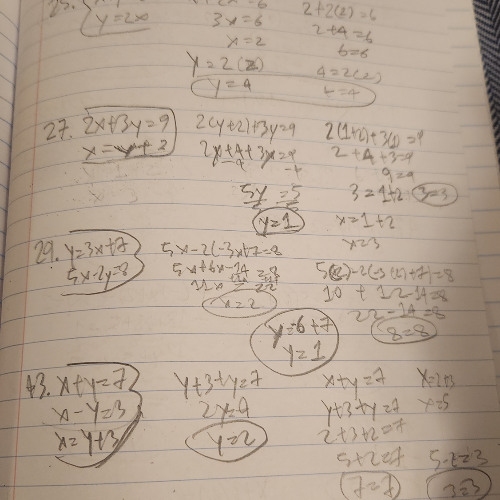 25.
y=2x
3x=6
x=2
y=2(2)
y=4
2+2(2)=6
2+4=6
6=6
4=2(2)
4=4
27. 2x+3y=9
x=y+2
2(y+2)+3y=9
5y=5
y=1
2(1+2)+3(1)=9
2+4+3=9
9=9
3=1+2
3=3
x=1+2
x=3
29. y=3x+7
5x-2y=8
5x-2(-3x+7=8
5x+6x-14=8
11x=22
x=2
10+12-14=8
22-14=8
8=8
y=6+7
y=1
43. x+y=7
x-y=3
x=y+3
y+3+y=7
2y=4
y=2
x+y=7
y+3+y=7
2+3+2=7
5+2=7
7=7
x=2+3
x=5
5-2=3
3=3